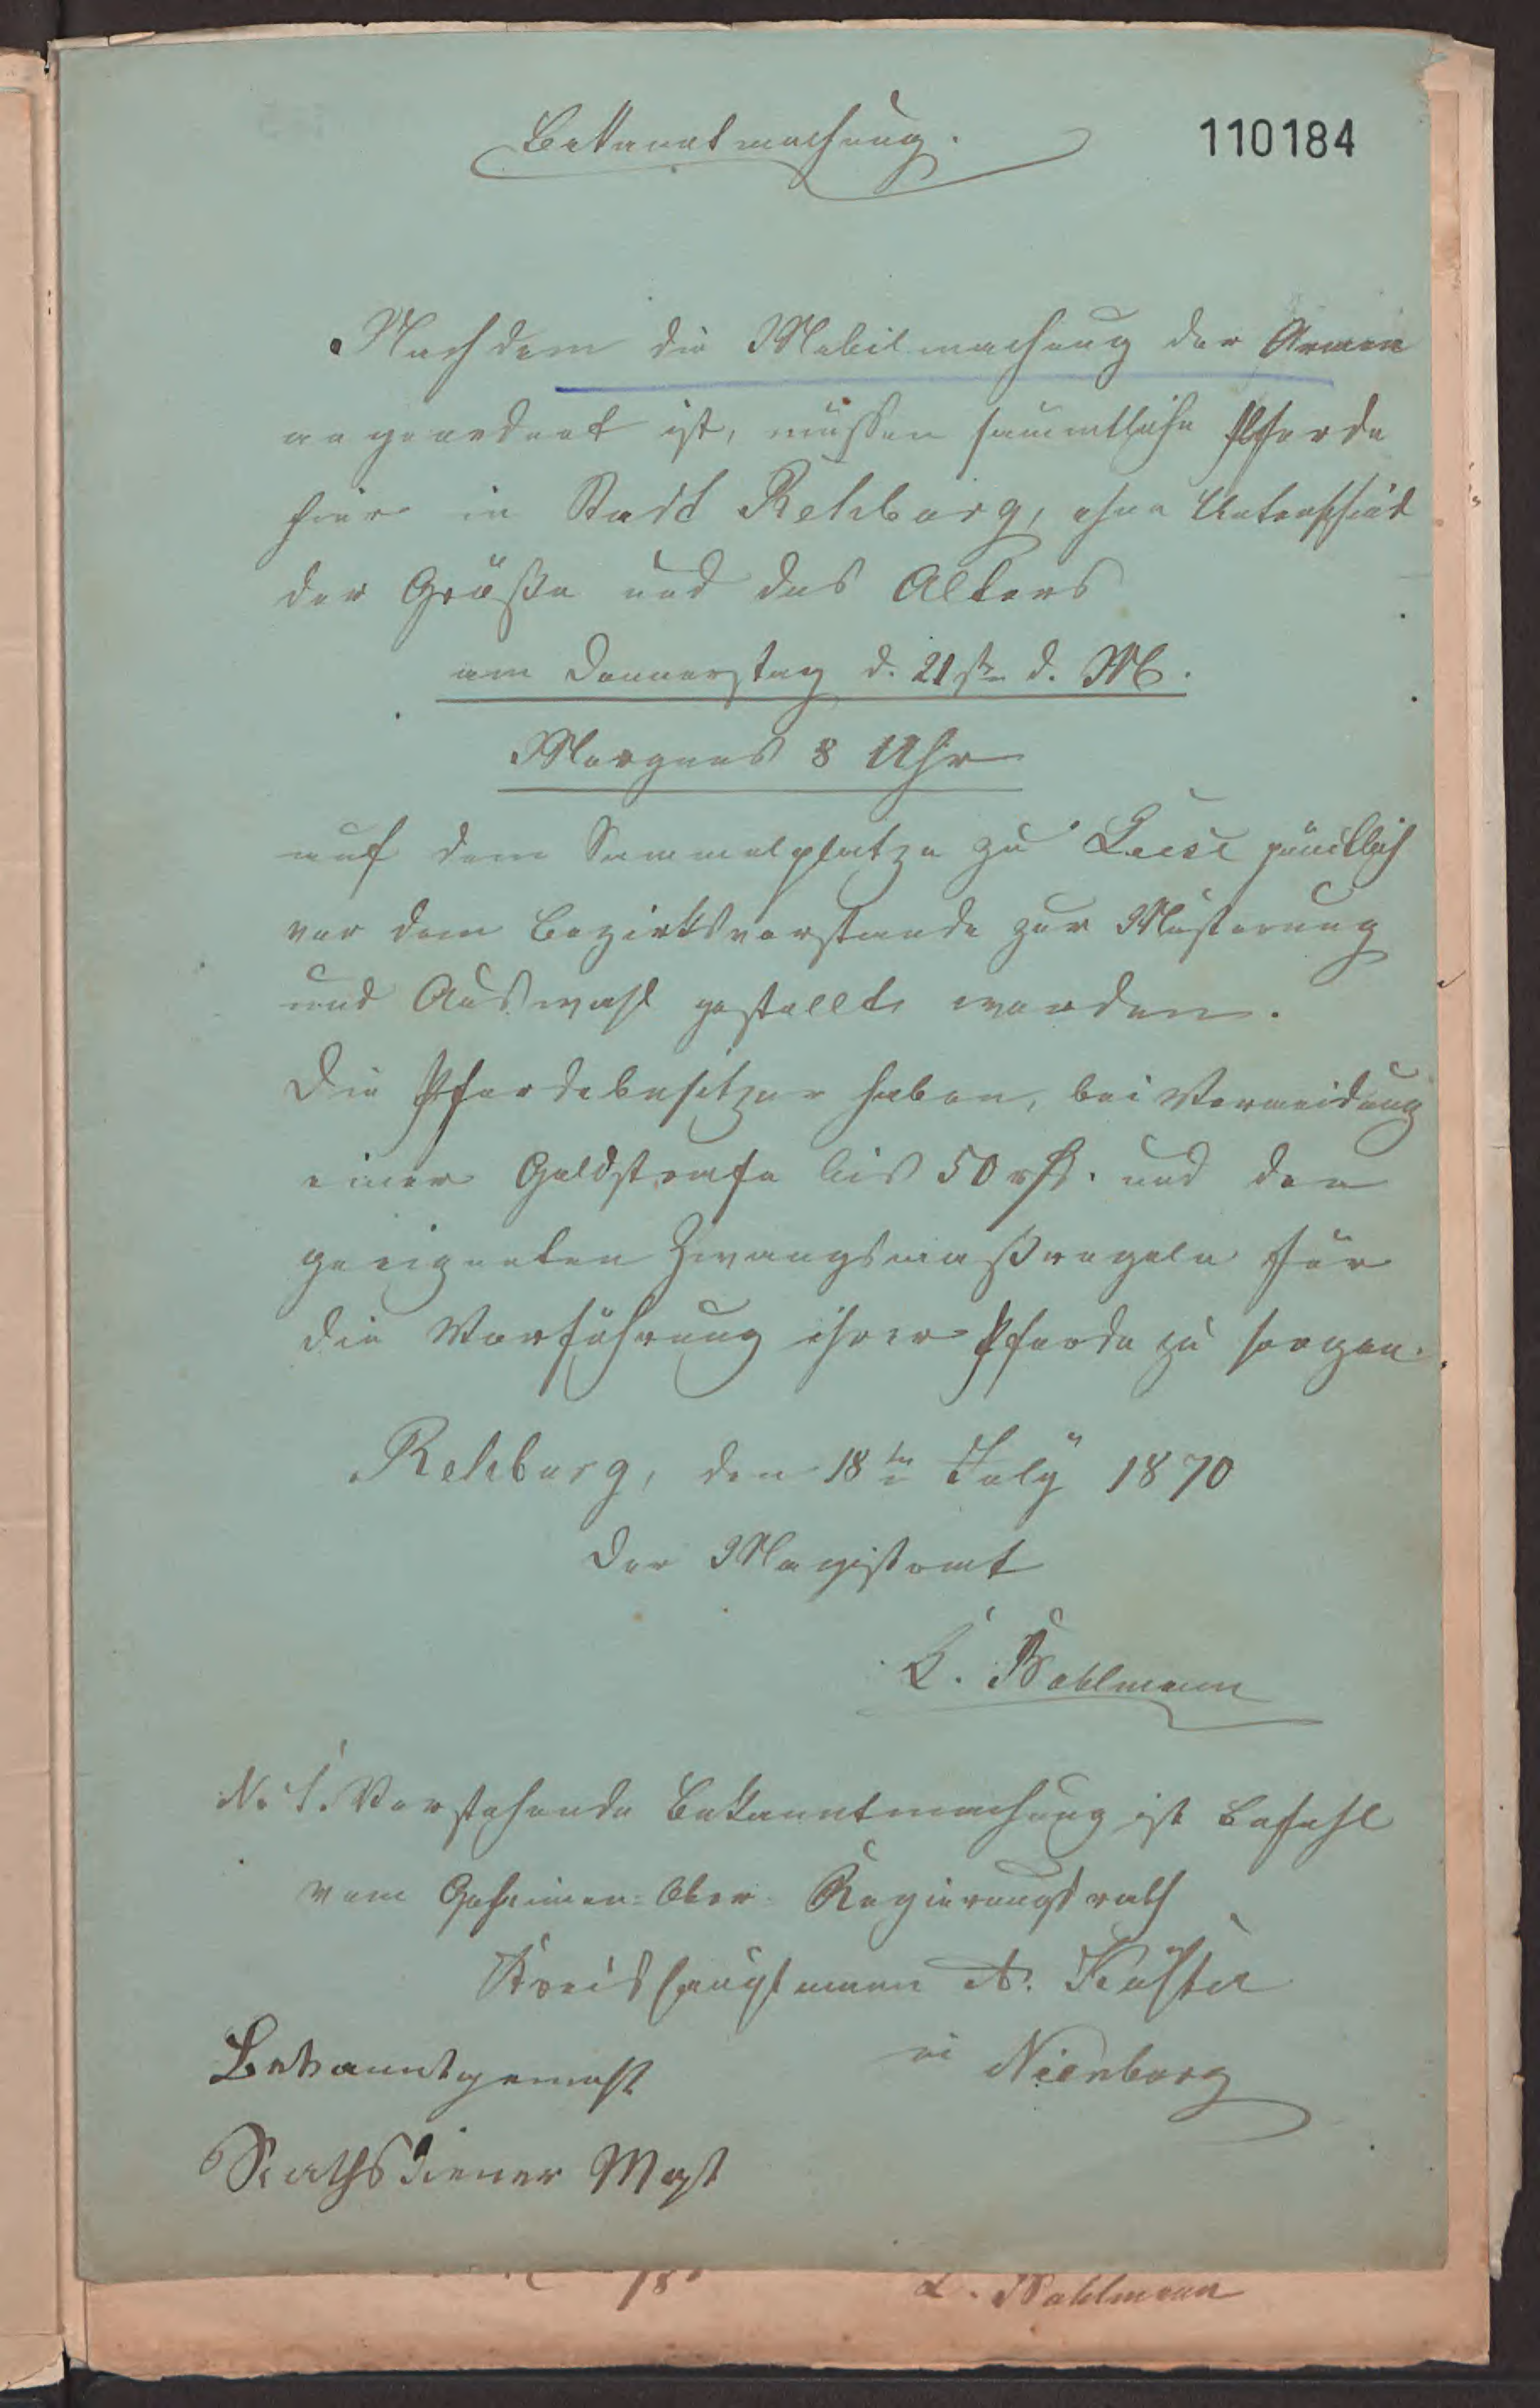 Bekanntmachung.
110184
Nachdem die Mobilmachung der Armee
angeordnet ist, müssen sämmtliche Pferde
hier in Stadt Rehburg, ohne Unterschied
der Größe und des Alters
am Donnerstag d. 21ste d. M.
Morgens 8 Uhr
auf dem Sammelplatze zu Leese pünktlich
vor dem Bezirksvorstande zur Musterung
und Auswahl gestellt werden.
Die Pferdebesitzer haben, bei Vermeidung
einer Geldstrafe bis 50 rℓ. und den
geeigneten Zwangsmaßregeln für
die Vorführung ihrer Pferde zu sorgen.
Rehburg, den 18ten July 1870
Der Magistrat
Vorstehende Bekanntmachung ist Befehl
vom Geheimen-Ober-Regierungsrath
Kreishauptmann
in Nienburg
Bekanntgemacht
Rathsdiener Mast
18